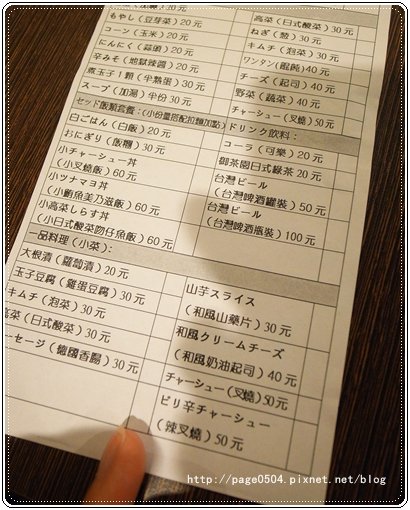 もやし（豆芽菜）20元
コーン（玉米）20元
にんにく（蒜頭）20元
辛みそ（地獄辣醬）20元
煮玉子1顆（半熟蛋）30元
スープ（加湯）半份 30元
高菜（日式酸菜）30元
ねぎ（蔥）30元
キムチ（泡菜）30元
ワンタン（餛飩）40元
チーズ（起司）40元
野菜（蔬菜）40元
チャーシュー（叉燒）50元
セット飯類套餐：（小份量搭配拉麵加點）
白ごはん（白飯）20元
おにぎり（飯糰）30元
小チャーシュー丼
（小叉燒飯）60元
小ツナマヨ丼
（小鮪魚美乃滋飯）60元
小高菜しらす丼
（小日式酸菜吻仔魚飯）60元
ドリンク飲料：
コーラ（可樂）20元
御茶園日式綠茶 20元
台灣ビール
（台灣啤酒罐裝）50元
台灣ビール
（台灣啤酒瓶裝）100元
一品料理（小菜）：
大根漬（蘿蔔漬）20元
玉子豆腐（雞蛋豆腐）30元
キムチ（泡菜）30元
高菜（日式酸菜）30元
ーセージ（德國香腸）30元
山芋スライス
（和風山藥片）30元
和風クリームチーズ
（和風奶油起司）40元
チャーシュー（叉燒）50元
ピリ辛チャーシュー
（辣叉燒）50元
http://page0504.pixnet.net/blog